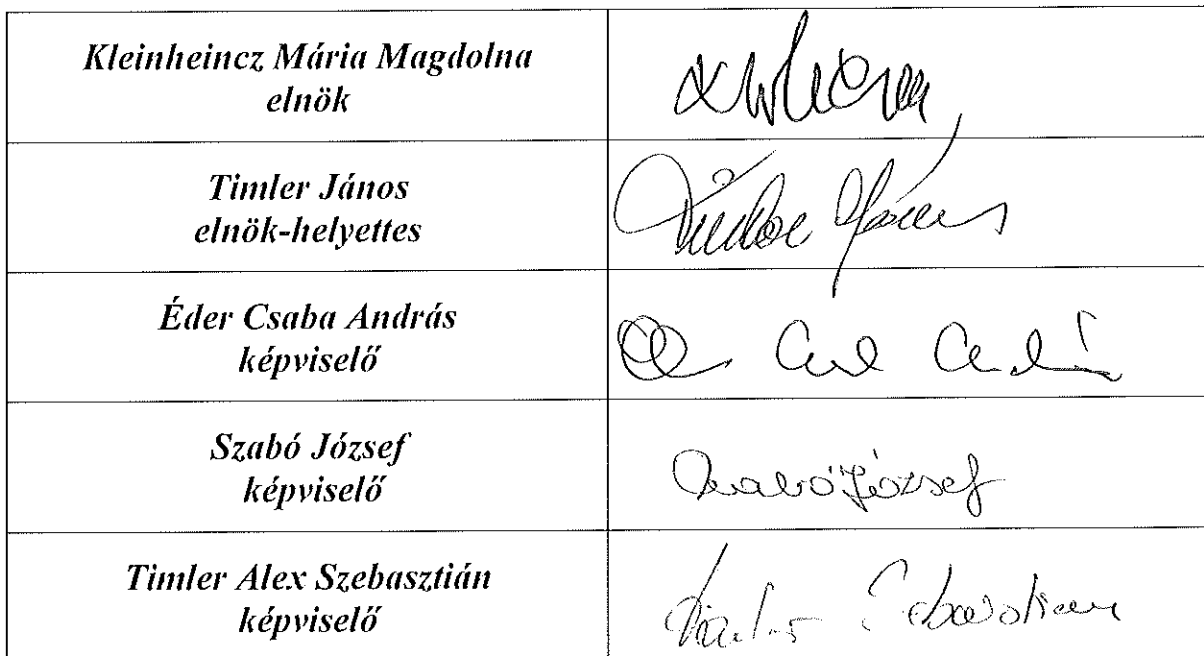 Kleinheincz Mária Magdolna
elnök
Timler János
elnök-helyettes
Éder Csaba András
képviselő
Szabó József
képviselő
Szabó József
Timler Alex Szebasztián
képviselő